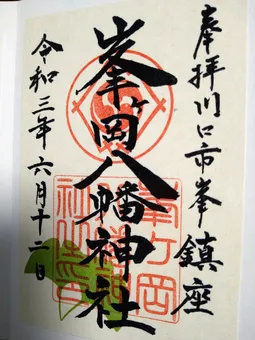 奉拝川口市峯鎮座
峯ヶ岡八幡神社
令和三年六月十二日